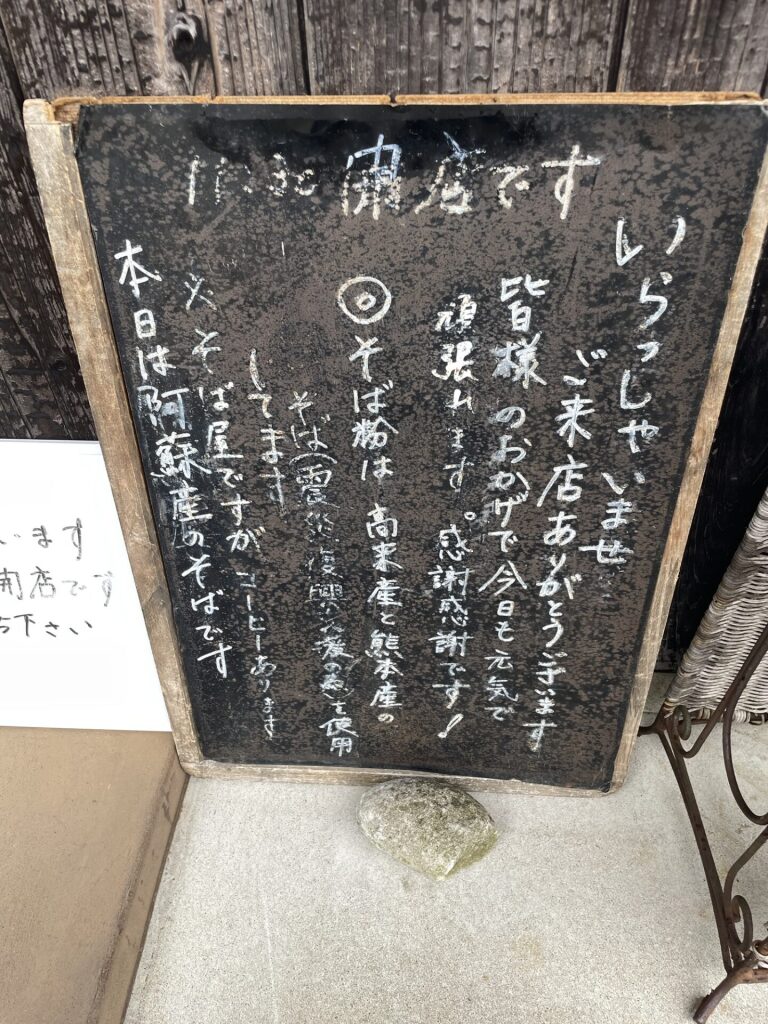 11:30 開店です
いらっしゃいませ
ご来店ありがとうございます
皆様のおかげで今日も元気で
頑張れます。感謝感謝です!
◎そば粉は高来産と熊本産の
そば(震災復興の支援の為)を使用
してます
※そば屋ですがコーヒーあります
本日は阿蘇産のそばです
います
開店です
下さい